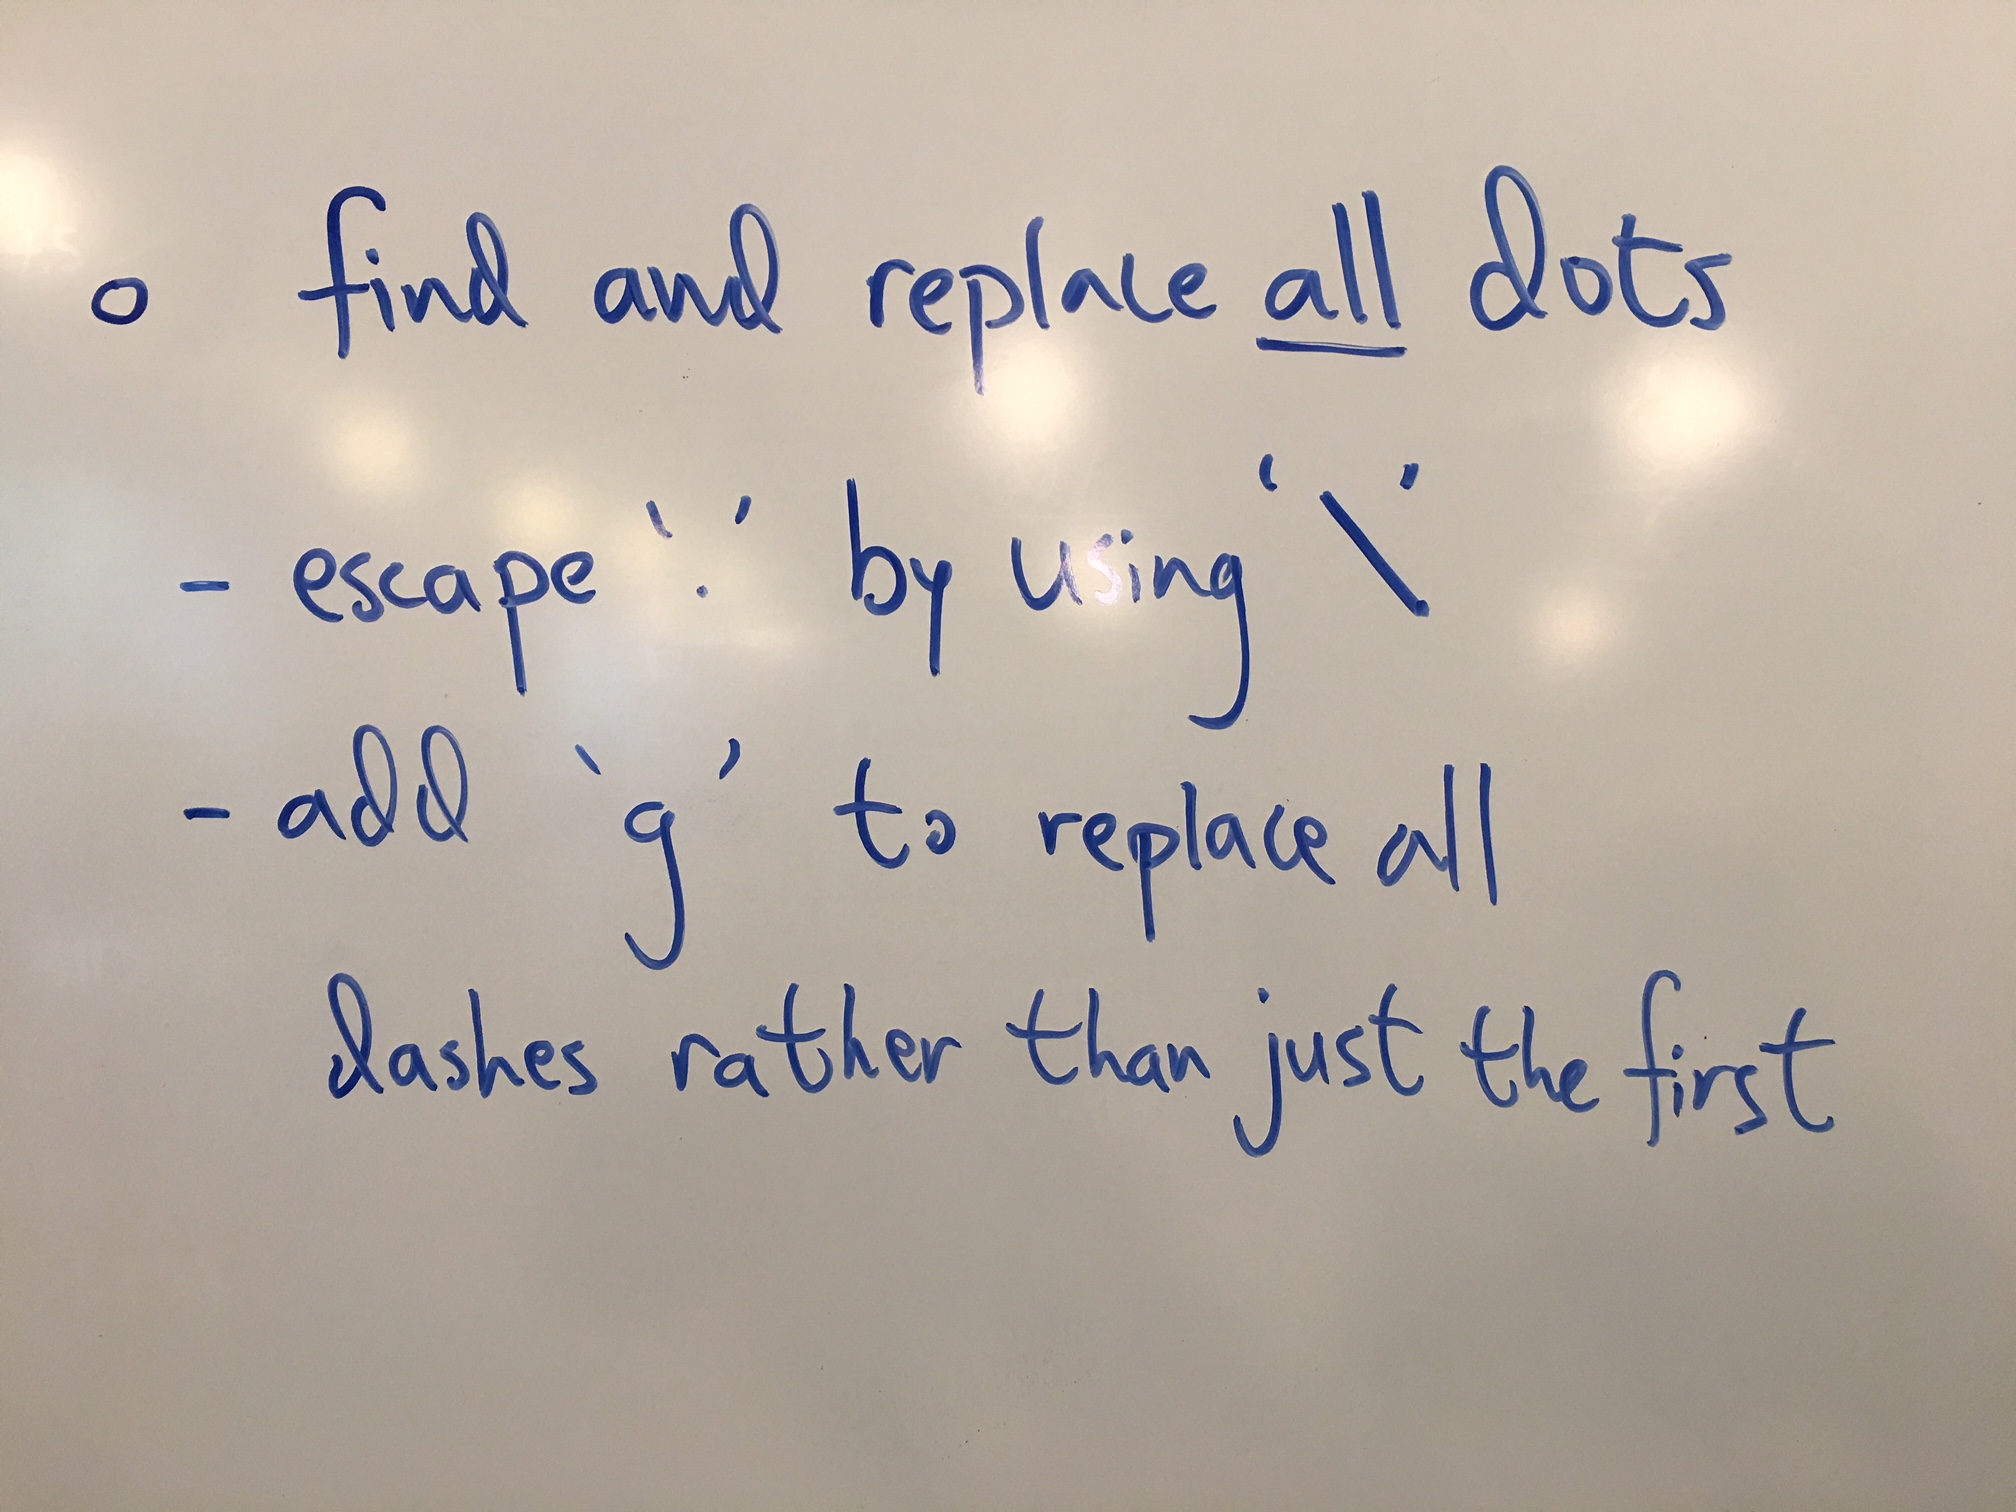 o find and replace all dots
- escape '.' by using '\'
- add 'g' to replace all
dashes rather than just the first